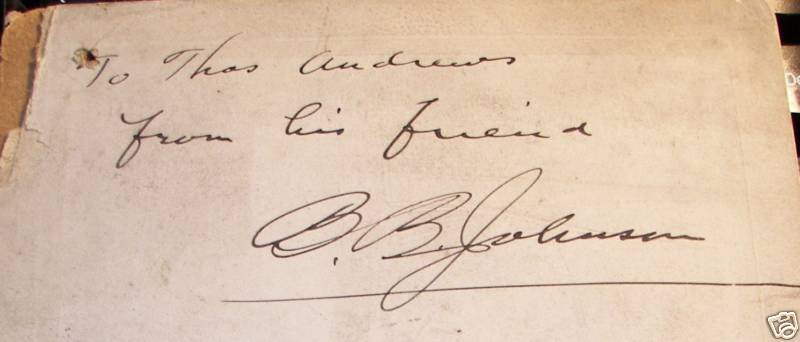 To Thos Andrews
from his friend
B. B. Johnson